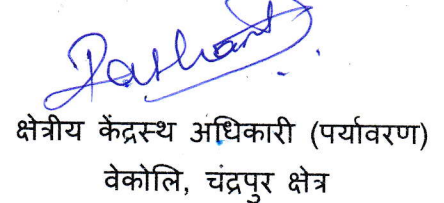 क्षेत्रीय केंद्रस्थ अधिकारी (पर्यावरण)
वेकोलि, चंद्रपुर क्षेत्र